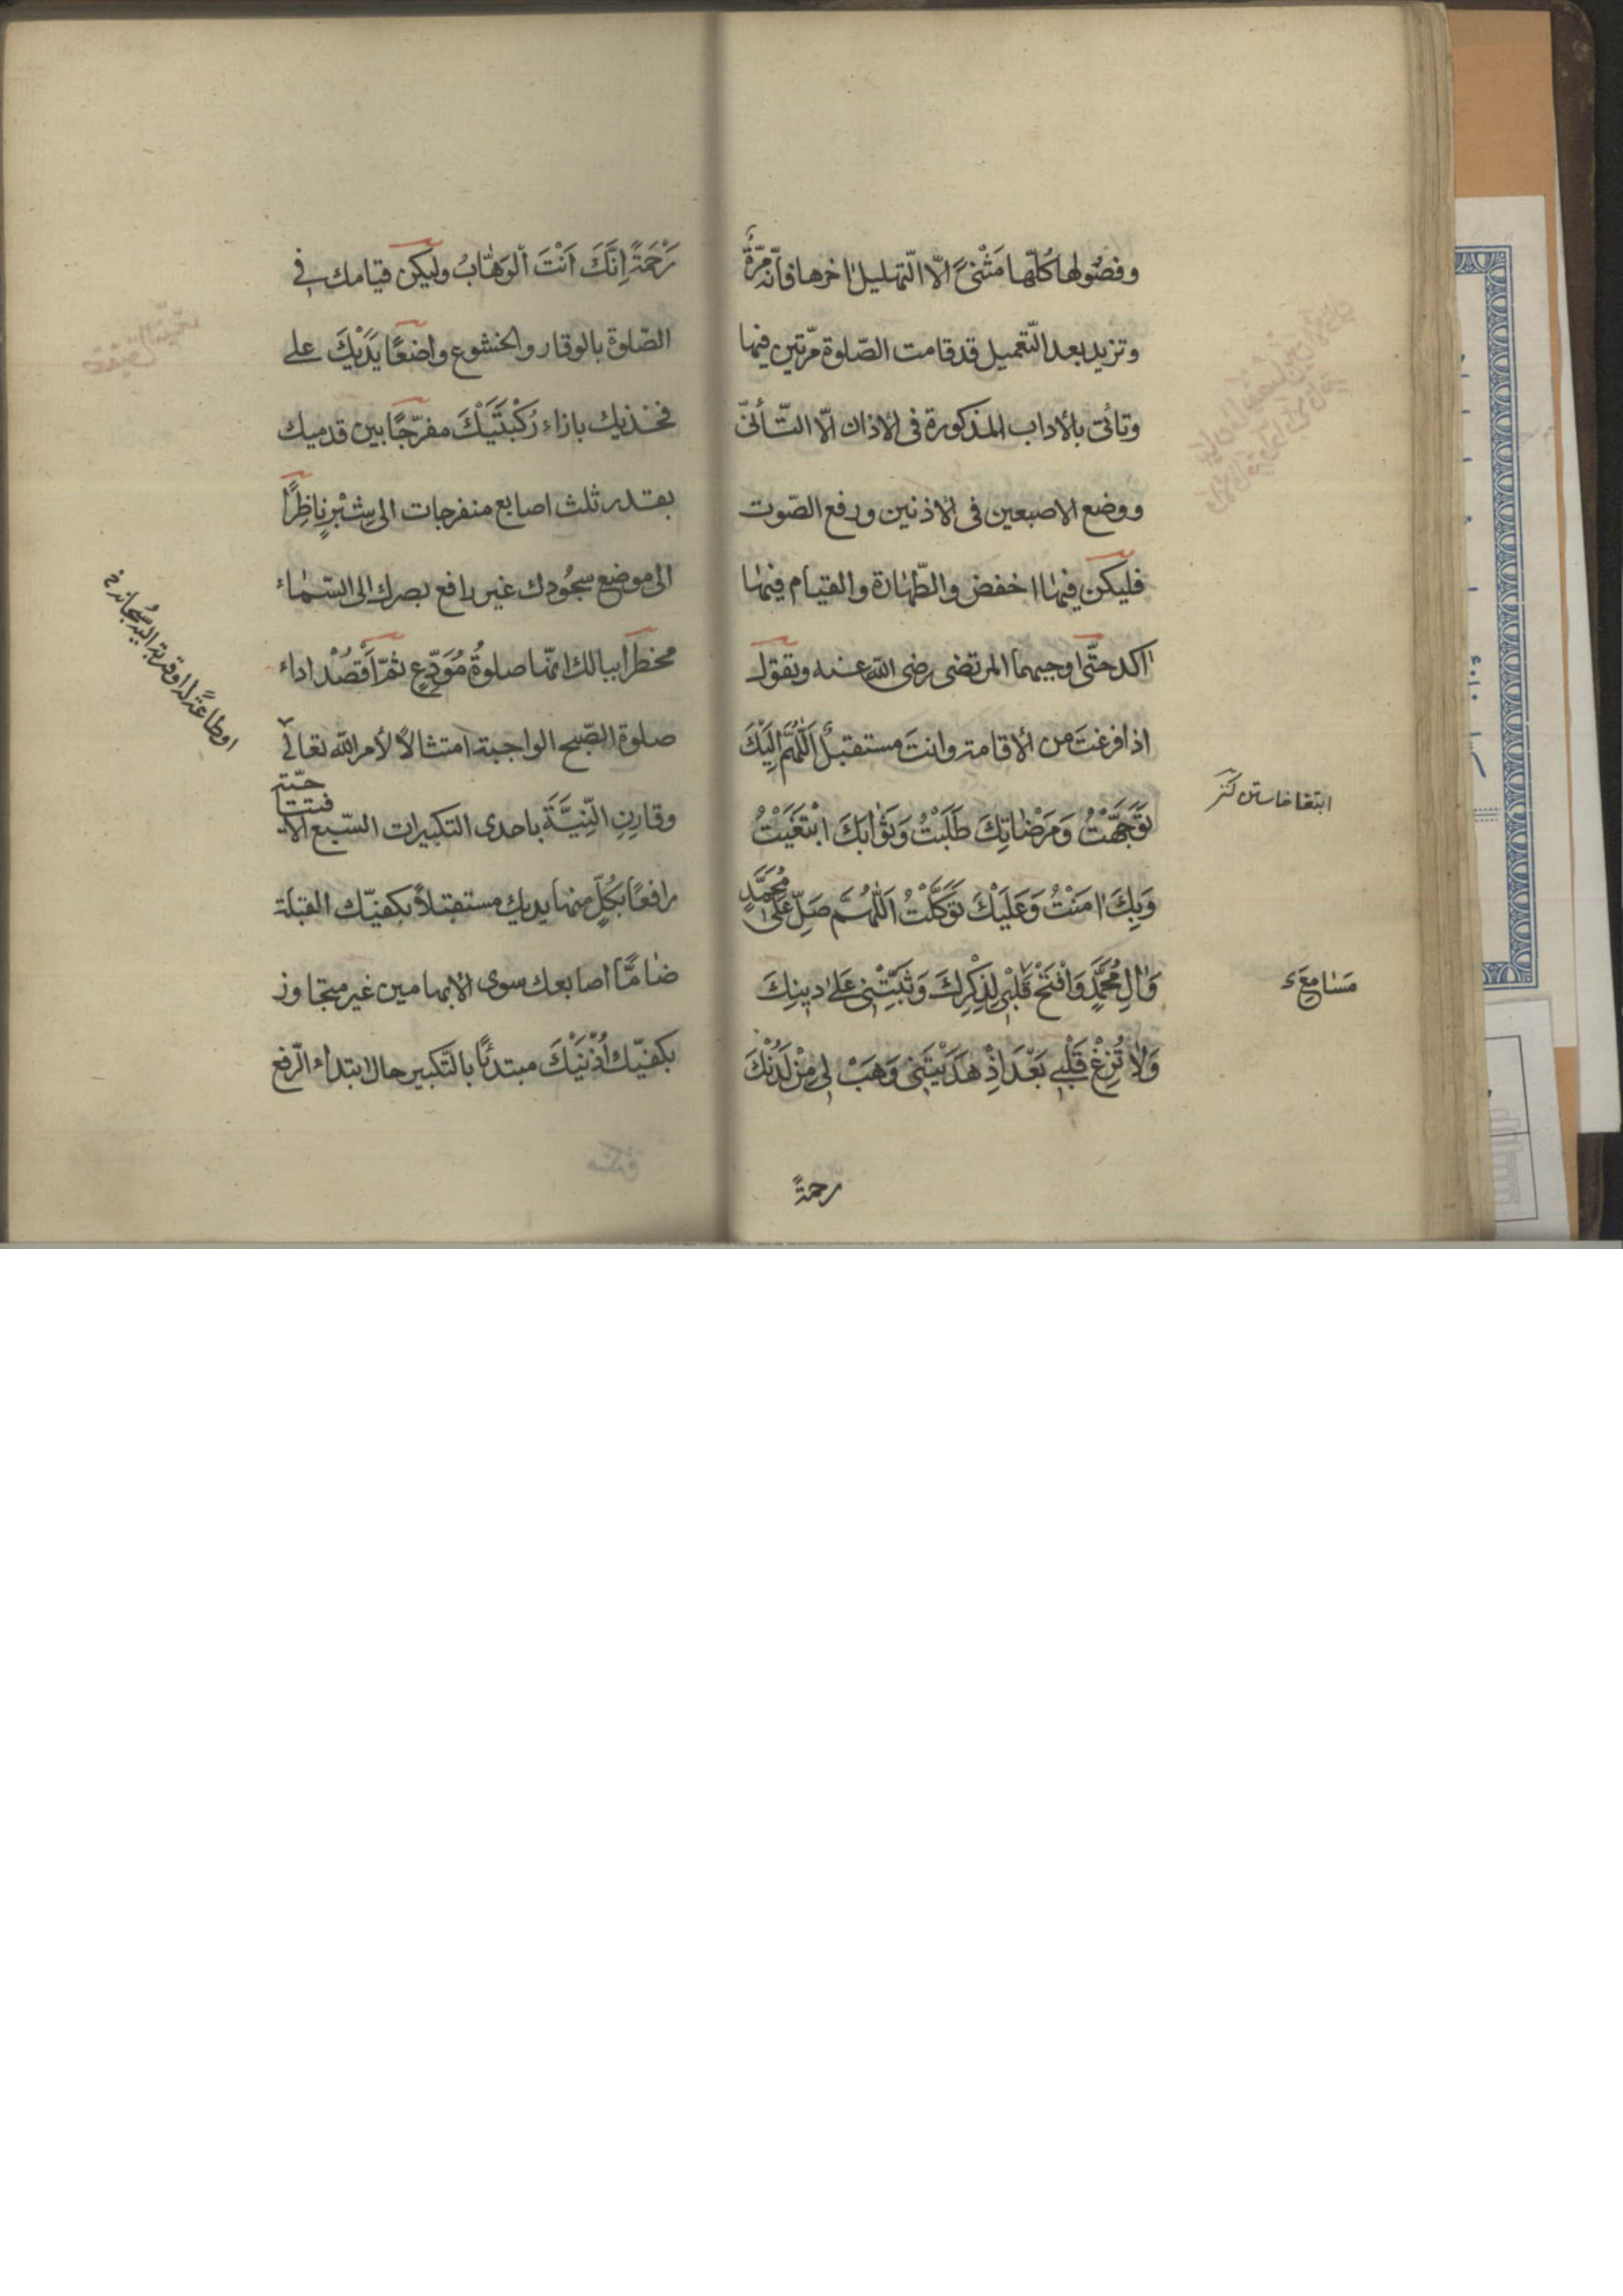 وفصُولها كُلّها مَثْنىً الّا التّهليل اٰخرها فانّه مرّةً
وتزيد بعد التّعميل قد قامت الصّلوة مرّتين فيها
وتأتى بالاداب المذكورة فى الاذان الّا التّأنّى
ووضع الاصبعين فى الاذنين ورفع الصّوت
فليكن فيهٰا اخفض والطّهٰارة والقيام فيهٰا
اٰكد حتّى اوجبهما المرتضى رضى اللّه عنه وتقول
اذا فرغتَ من الاقامة وانتَ مستقبل اَللّٰهُمَّ اِلَيْكَ
تَوَجَّهْتُ وَمَرْضٰاتِكَ طَلَبْتُ وَثَوٰابَكَ ابْتَغَيْتُ
وَبِكَ اٰمَنْتُ وَعَلَيْكَ تَوَكَّلْتُ اَللّٰهُمَّ صَلِّ عَلٰى مُحَمَّدٍ
وَاٰلِ مُحَمَّدٍ وَافْتَحْ قَلْبِى لِذِكْرِكَ وَثَبِّتْنِى عَلٰى دٖينِكَ
وَلٰا تُزِغْ قَلْبٖى بَعْدَ اِذْ هَدَيْتَنٖى وَهَبْ لٖى مِنْ لَدُنْكَ
رحمةً
ابتغا خاستن كنز
مَسٰامِعَ
رَحْمَةً اِنَّكَ اَنْتَ الْوَهّٰابُ وليكن قيامك فى
الصّلوة بالوقار والخشوع واضعًا يَدَيْكَ على
فخذيك بازاء رُكْبَتَيْكَ مفرّجًا بين قدميك
بقدر ثلث اصابع منفرجات الى شِبْرٍ ناظِرًا
الى موضع سجُودك غير رافع بصرك الى السّمٰاء
مخطراً ببالك انّها صلوةُ مُوَدِّعٍ ثمّ اَقْصُدْ اداء
صلوة الصّبح الواجبة امتثالاً لأمر اللّه تعالى
وقارِنِ النِّيَّةَ باحدى التكبيرات السّبع الافتتاحيّة
رافعًا بكُلٍّ منها يديك مستقبلاً بكفيّك القبلة
ضٰامًّا اصابعك سوى الابهامين غير متجاوز
بكفيّك اُذُنَيْكَ مبتدئًا بالتّكبير حال ابتداء الرّفع
او طاعةً له او قربة اليه